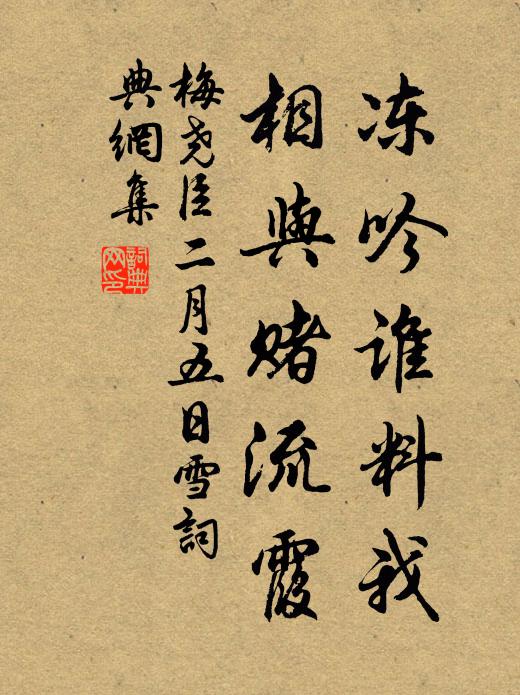 冻吟谁料我
相与赌流霞
梅尧臣二月五日雪词
典网集
词典网印